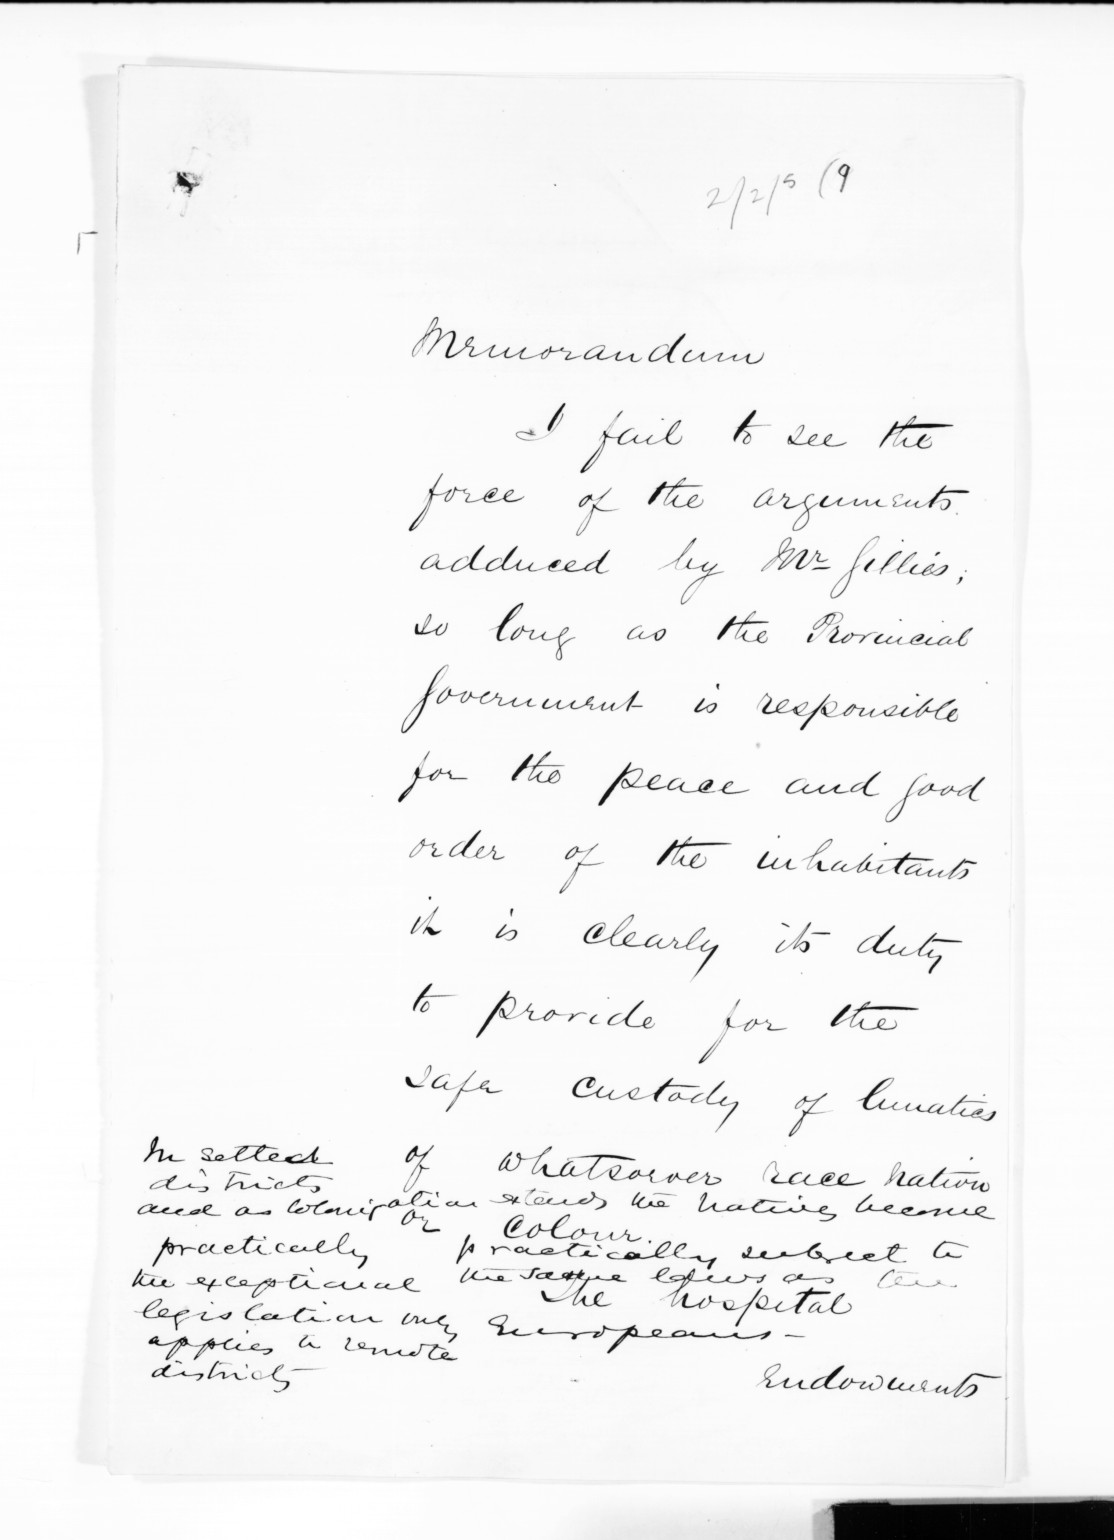 2/2/5 (9
Memorandum
I fail to see the
force of the arguments
adduced by Mr Gillies;
so long as the Provincial
Government is responsible
for the peace and good
order of the inhabitants
it is clearly its duty
to provide for the
safe custody of lunatics
of whatsoever race nation
or Colour.
The hospital
Endowments
In settled
districts
and as colonization extends the natives become
practically practically subject to
the same laws as
Europeans -
the exceptional
legislation only
applies to remote
districts